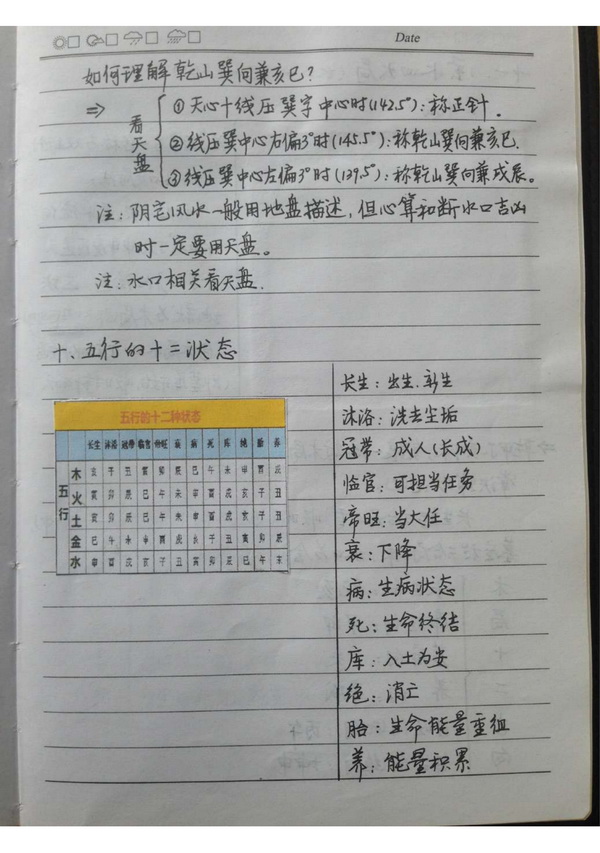 Date
如何理解乾山巽向兼亥巳?
⇒ 看天盘
①天心十线压巽字中心时(142.5°):称正针.
②线压巽中心右偏3°时(145.5°):称乾山巽向兼亥巳.
③线压巽中心左偏3°时(139.5°):称乾山巽向兼戌辰。
注:阴宅风水一般用地盘描述,但心算和断水口吉凶
时一定要用天盘。
注:水口相关看天盘.
十、五行的十二状态
五行的十二种状态
长生 沐浴 冠带 临官 帝旺 衰 病 死 库 绝 胎 养
五行
木 亥 子 丑 寅 卯 辰 巳 午 未 申 酉 戌
火 寅 卯 辰 巳 午 未 申 酉 戌 亥 子 丑
土 寅 卯 辰 巳 午 未 申 酉 戌 亥 子 丑
金 巳 午 未 申 酉 戌 亥 子 丑 寅 卯 辰
水 申 酉 戌 亥 子 丑 寅 卯 辰 巳 午 未
长生:出生.新生
沐浴:洗去尘垢
冠带:成人(长成)
临官:可担当任务
帝旺:当大任
衰:下降
病:生病状态
死:生命终结
库:入土为安
绝:消亡
胎:生命能量重组
养:能量积累